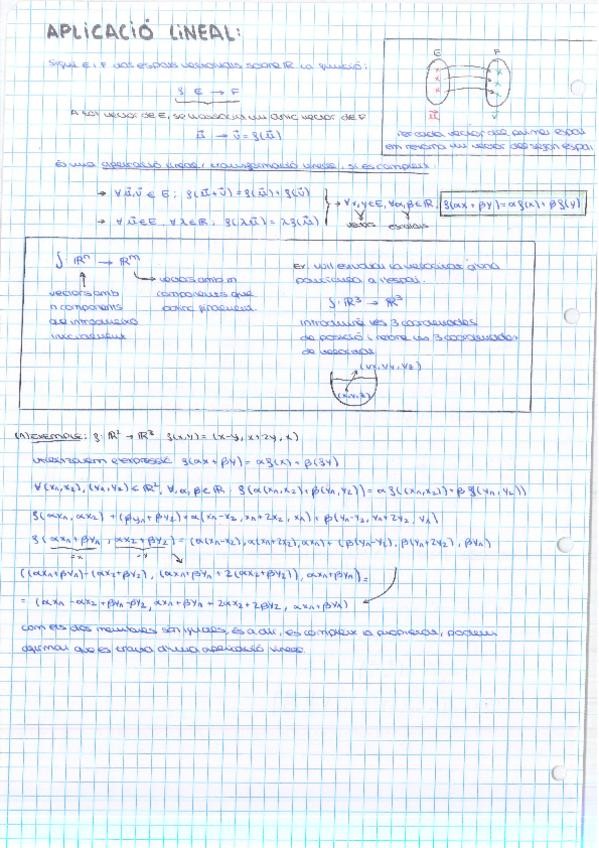 APLICACIÓ LINEAL:
Sigui E i F dos espais vectorials sobre ℝ la funció:
f: E → F
A tot vector de E, se li associa un únic vector de F
u⃗ → v⃗ = f(u⃗)
E F
u⃗ v⃗
Per cada vector del primer espai
em retorna un vector del segon espai
És una aplicació lineal / transformació lineal, si es compleix:
→ ∀u⃗,v⃗ ∈ E; f(u⃗+v⃗) = f(u⃗) + f(v⃗)
→ ∀u⃗ ∈ E, ∀λ ∈ ℝ; f(λu⃗) = λf(u⃗)
→ ∀x,y ∈ E, ∀α,β ∈ ℝ, f(αx + βy) = αf(x) + βf(y)
vectors escalars
f: ℝⁿ → ℝᵐ
vectors amb
n components
que introdueixo
inicialment
vectors amb m
components que
obtinc finalment.
Ex: vull estudiar la velocitat d'una
partícula a l'espai.
f: ℝ³ → ℝ³
introduiré les 3 coordenades
de posició i rebré les 3 coordenades
de velocitat
(vx, vy, vz)
(x,y,z)
(1) EXEMPLE: f: ℝ² → ℝ³ f(x,y) = (x-y, x+2y, x)
f(αx + βy) = αf(x) + β(fy)
∀(x₁,x₂), (y₁,y₂) ∈ ℝ², ∀α,β ∈ ℝ; f(α(x₁,x₂) + β(y₁,y₂)) = αf((x₁,x₂)) + βf(y₁,y₂))
f(αx₁, αx₂) + (βy₁, βy₂) = α(x₁-x₂, x₁+2x₂, x₁) + β(y₁-y₂, y₁+2y₂, y₁)
f(αx₁+βy₁, αx₂+βy₂) = (α(x₁-x₂), α(x₁+2x₂), αx₁) + (β(y₁-y₂), β(y₁+2y₂), βy₁)
=x =y
((αx₁+βy₁)-(αx₂+βy₂), (αx₁+βy₁+2(αx₂+βy₂)), αx₁+βy₁) =
= (αx₁-αx₂+βy₁-βy₂, αx₁+βy₁+2αx₂+2βy₂, αx₁+βy₁)
com els dos membres són iguals, és a dir, es compleix la propietat, podem
afirmar que es tracta d'una aplicació lineal.